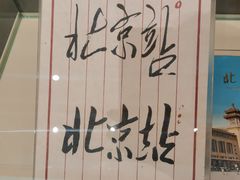 北京站
北京站